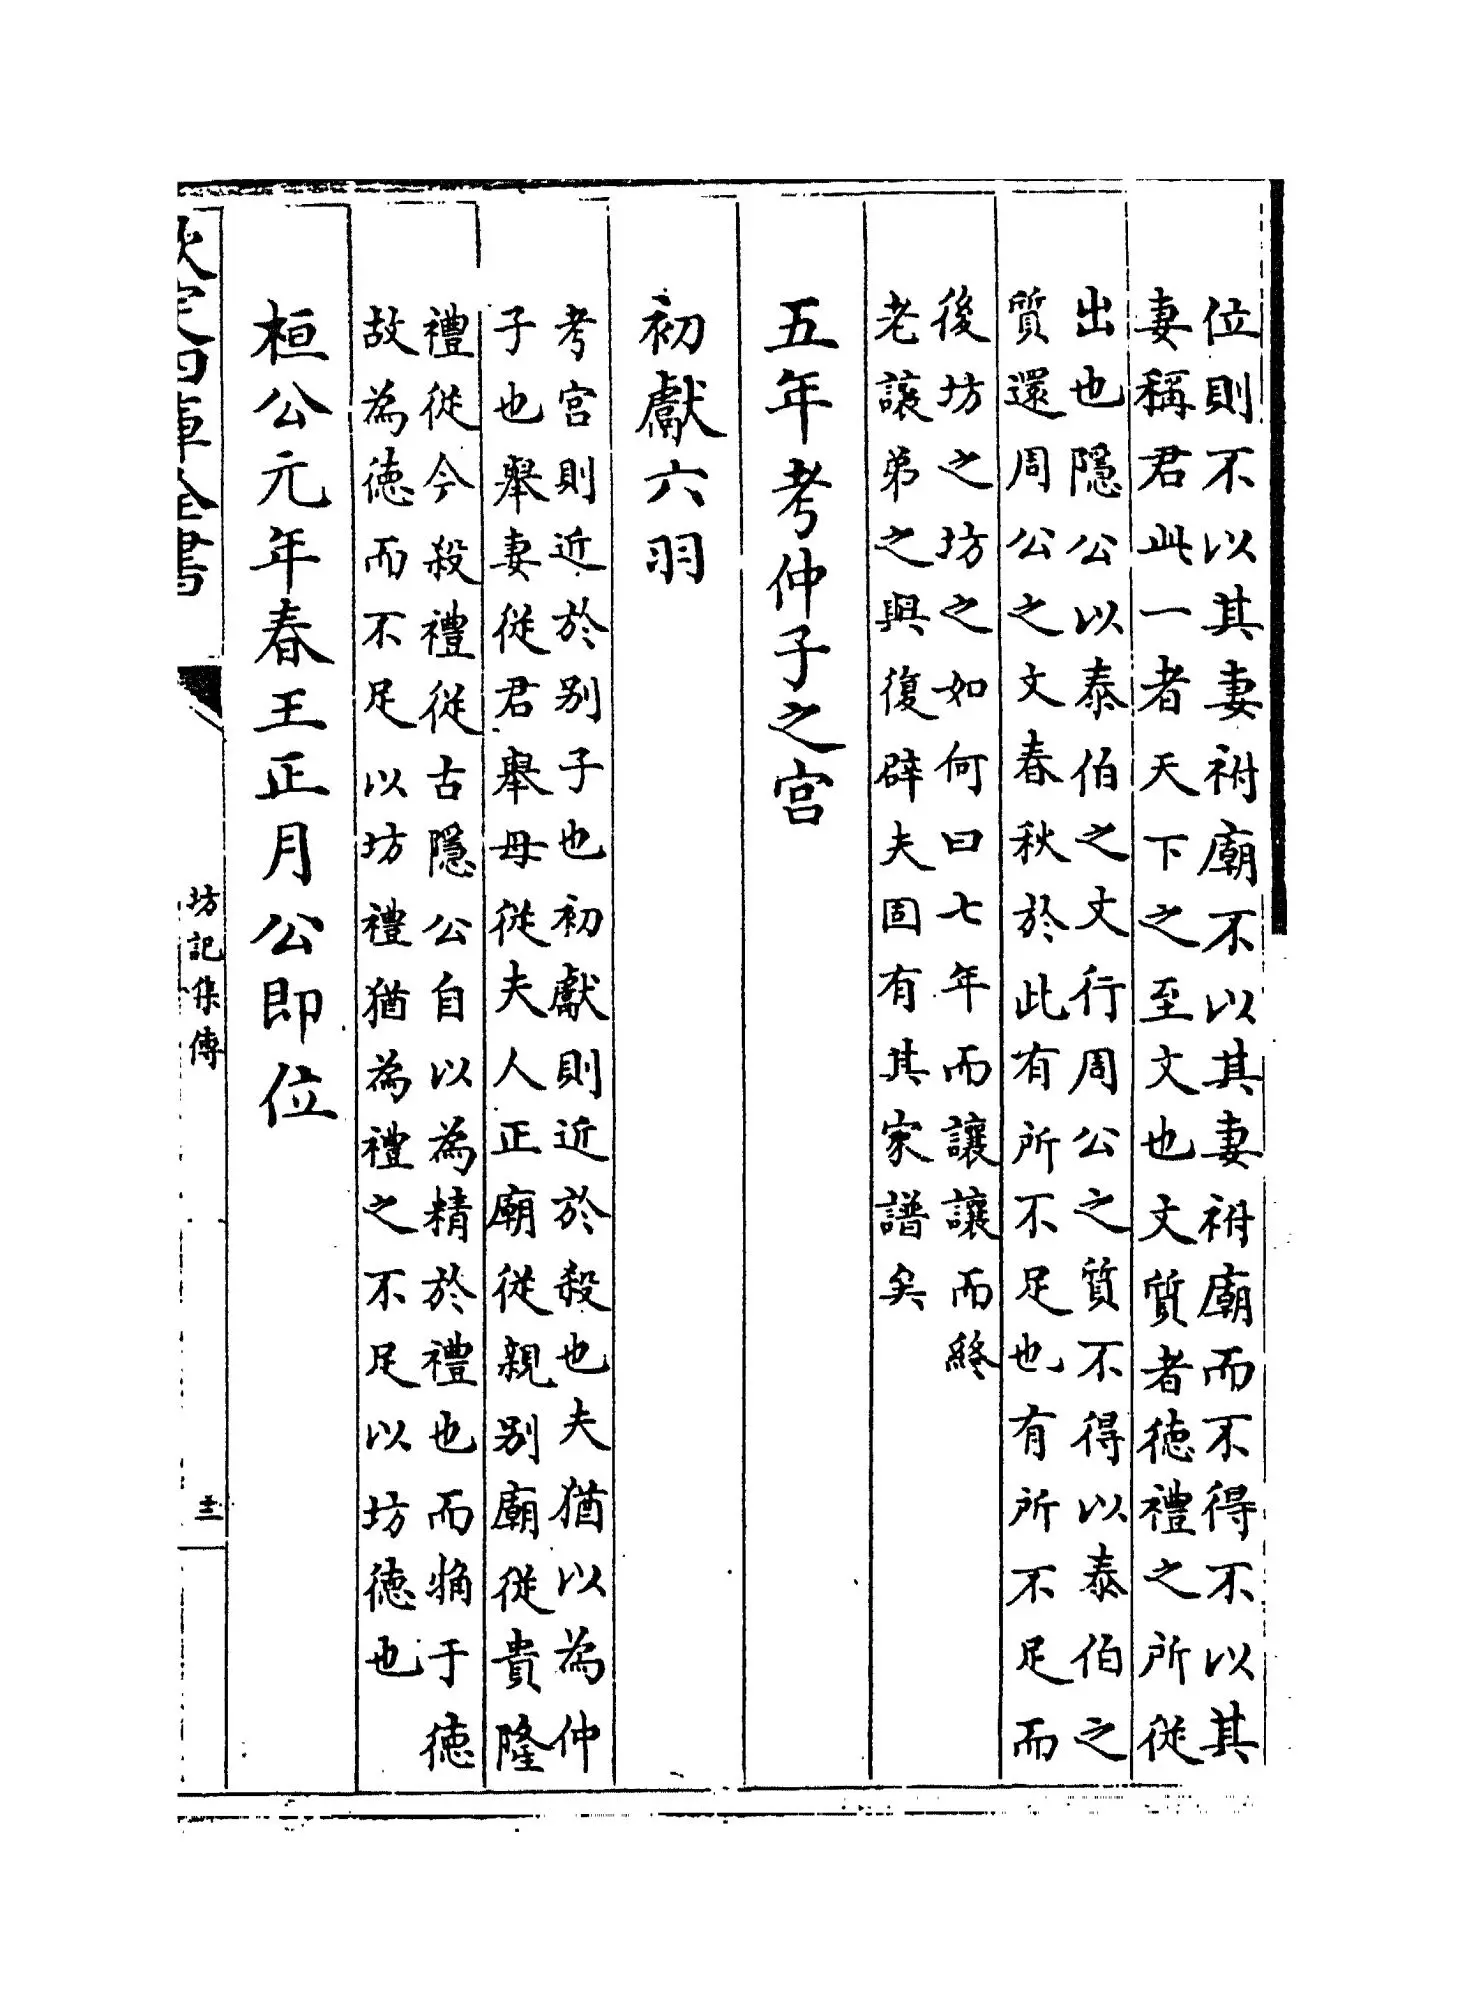 位則不以其妻祔廟不以其妻祔廟而不得不以其
妻稱君此一者天下之至文也文質者徳禮之所從
出也隱公以泰伯之文行周公之質不得以泰伯之
質還周公之文春秋於此有所不足也有所不足而
後坊之坊之如何曰七年而讓讓而終
老讓弟之興復辟夫固有其家譜矣
五年考仲子之宫
初獻六羽
考宫則近於别子也初獻則近於殺也夫猶以為仲
子也舉妻從君舉母從夫人正廟從親别廟從貴隆
禮從今殺禮從古隱公自以為精於禮也而痟于徳
故為徳而不足以坊禮猶為禮之不足以坊徳也
桓公元年春王正月公即位
欽定四庫全書
坊記集傳